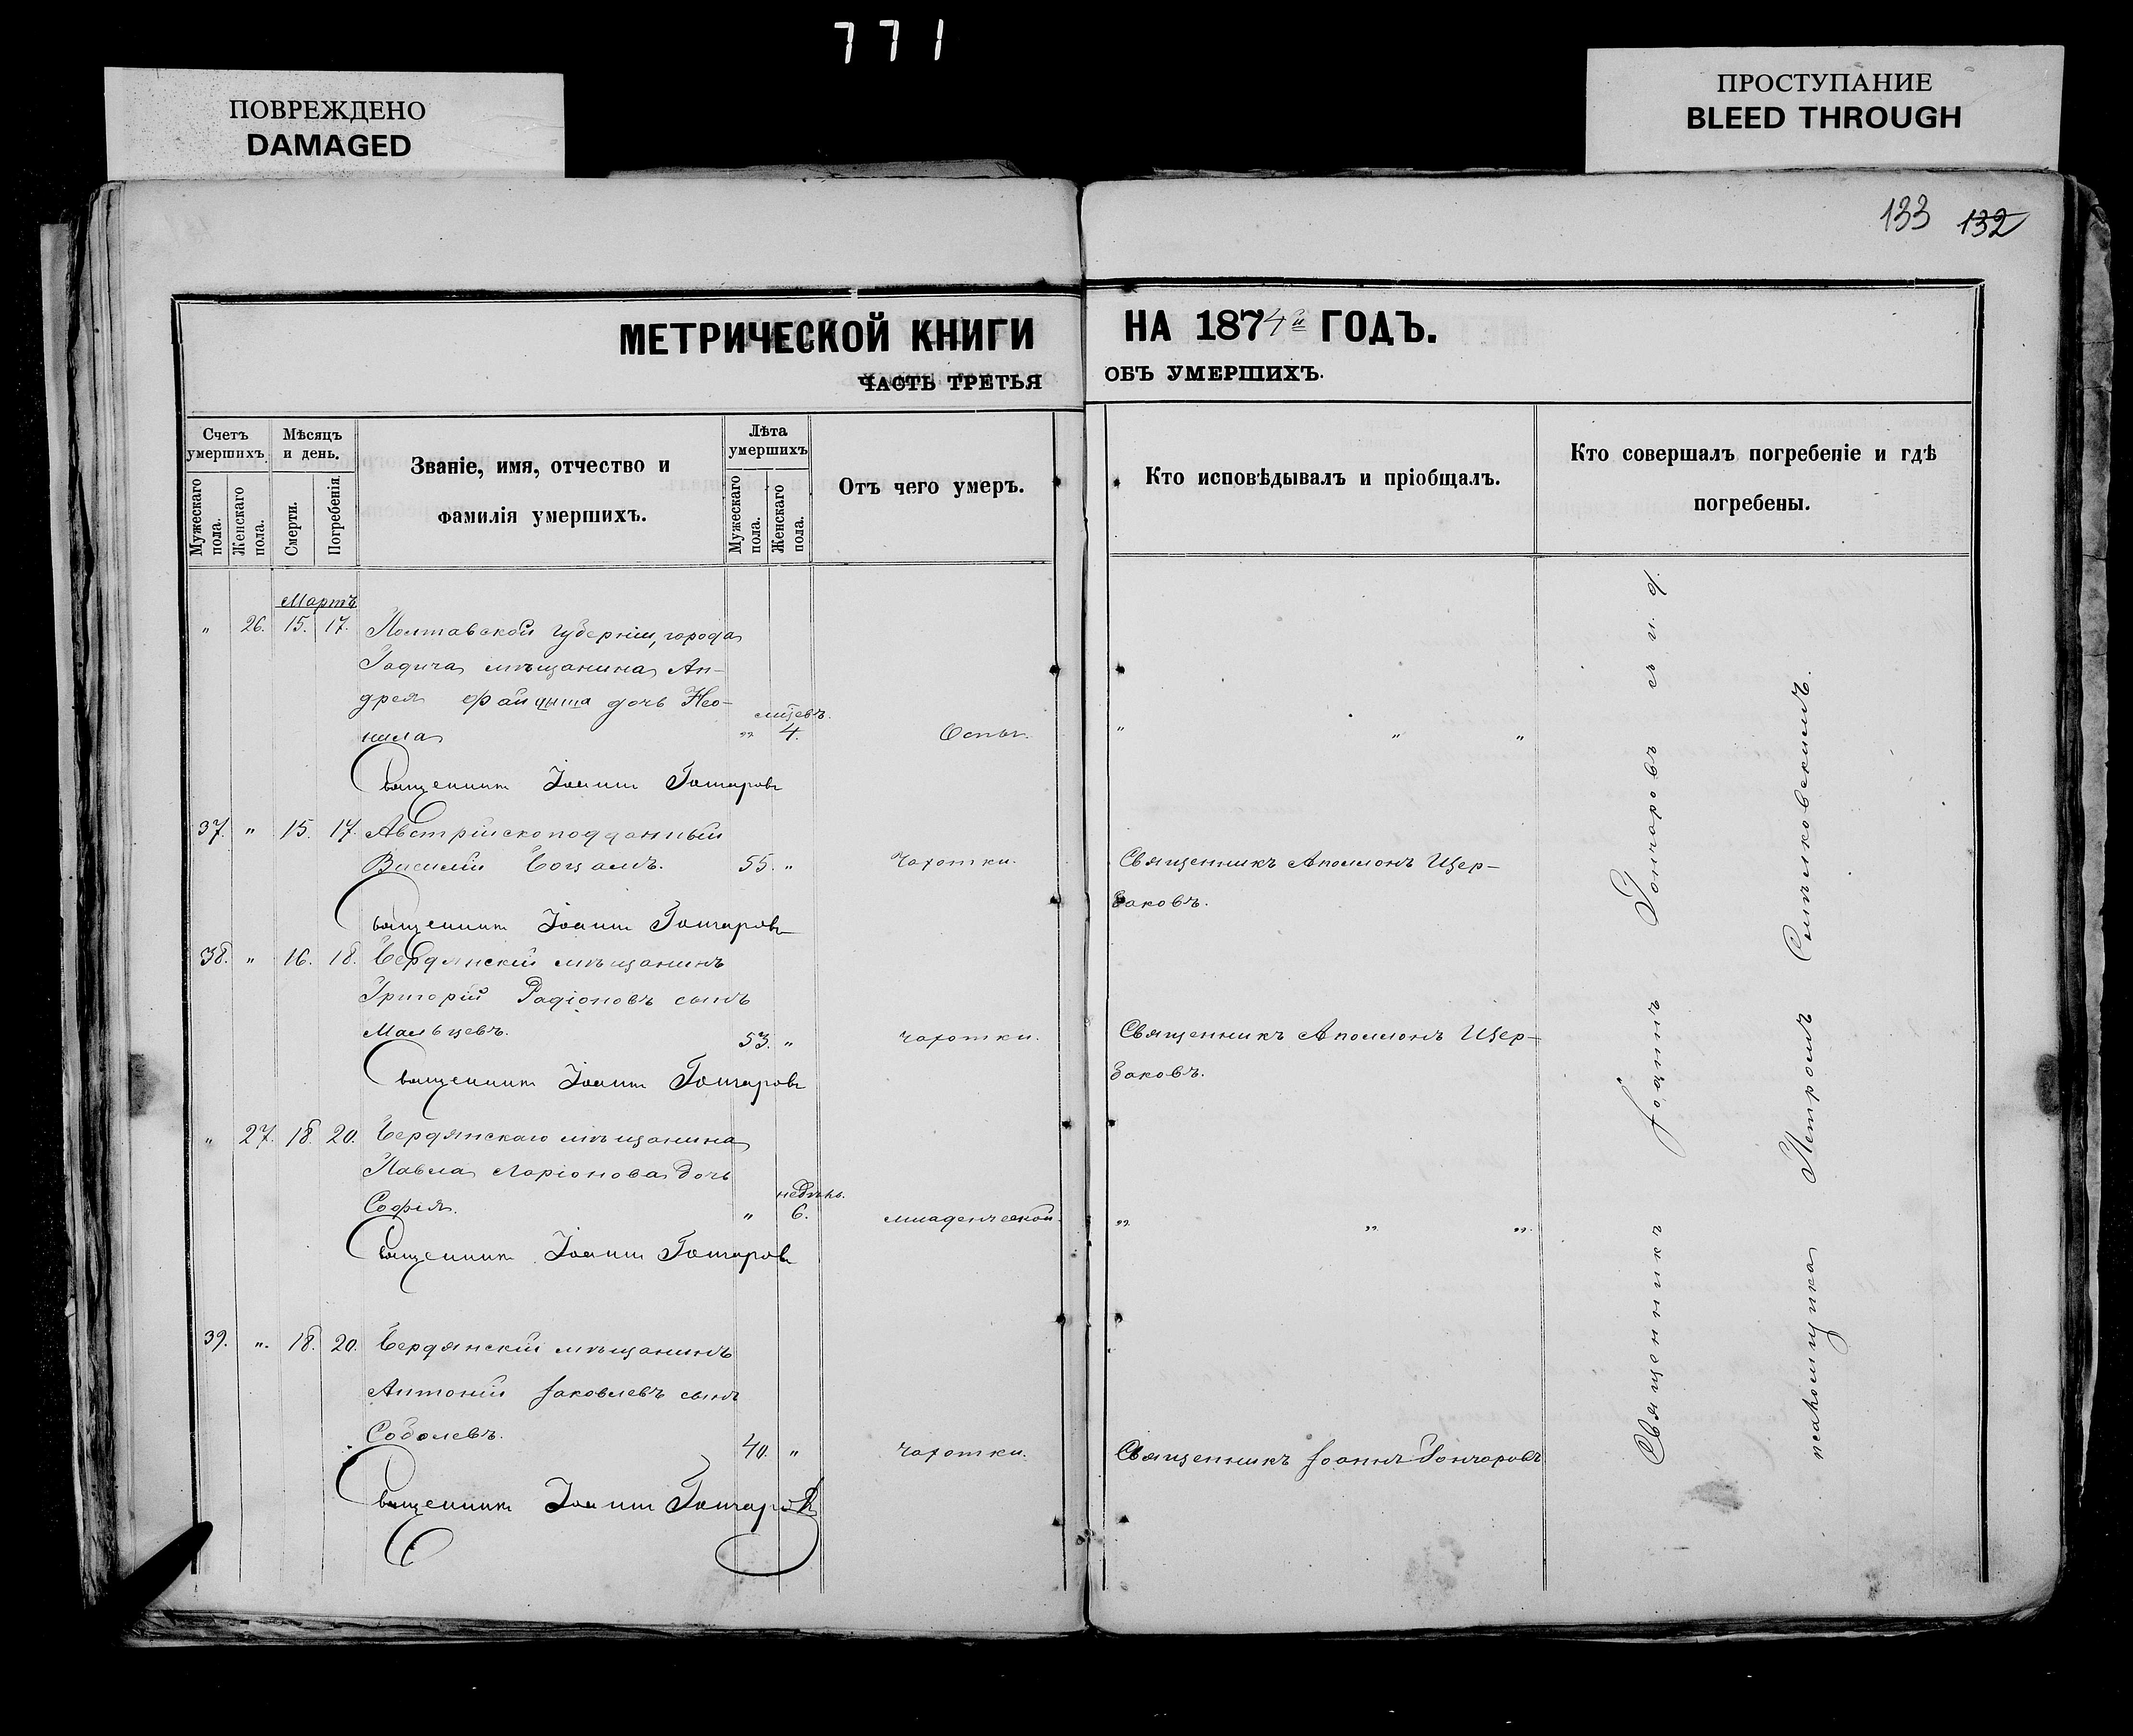 771
ПОВРЕЖДЕНО
DAMAGED
ПРОСТУПАНИЕ
BLEED THROUGH
133 132
МЕТРИЧЕСКОЙ КНИГИ НА 1874й ГОДЪ.
ЧАСТЬ ТРЕТЬЯ ОБЪ УМЕРШИХЪ.
Счетъ умершихъ.
Мужескаго пола.
Женскаго пола.
Мѣсяцъ и день.
Смерти.
Погребенія.
Званіе, имя, отчество и
фамилія умершихъ.
Лѣта умершихъ
Мужескаго пола.
Женскаго пола.
Отъ чего умеръ.
Кто исповѣдывалъ и пріобщалъ.
Кто совершалъ погребеніе и гдѣ
погребены.
Мартъ
" 26. 15. 17. Полтавской губерніи, города
Гадича мѣщанина Ан-
дрея дочь Нео-
нила " 4. Оспы. " " "
Священникъ Іоаннъ Гончаровъ
37. " 15. 17. Австрійскоподданный
Василій 55. " Чахотки. Священникъ Аполлонъ Щер-
баковъ.
Священникъ Іоаннъ Гончаровъ
38. " 16. 18. Бердянскій мѣщанинъ
Григорій Радіоновъ сынъ
Мальцевъ. 53. " Чахотки. Священникъ Аполлонъ Щер-
баковъ.
Священникъ Іоаннъ Гончаровъ
" 27. 18. 20. Бердянскаго мѣщанина
Павла Ларіонова дочь
недѣль.
Софія. " 6. младенческой. " " "
Священникъ Іоаннъ Гончаровъ
39. ". 18. 20. Бердянскій мѣщанинъ
Антоній Іаковлевъ сынъ
Соболевъ. 40. " Чахотки. Священникъ Іоаннъ Гончаровъ
Священникъ Іоаннъ Гончаровъ
Священникъ Іоаннъ Гончаровъ съ и. д.
псаломщика Петромъ